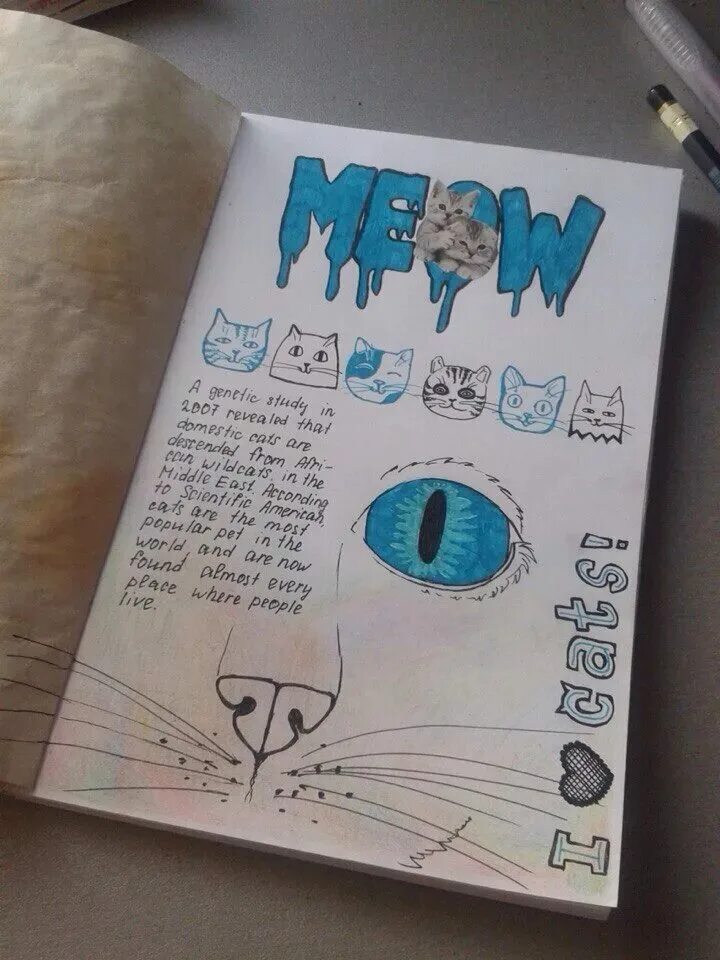 MEOW
A genetic study in
2007 revealed that
domestic cats are
descended from Afri-
can wildcats in the
Middle East. According
to Scientific American,
cats are the most
popular pet in the
world, and are now
found almost every
place where people
live.
I ♥ cats!